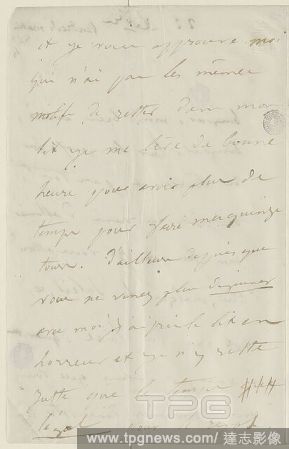 et je vous approuve moi
qui n'ai pas les mêmes
motifs de rester dans mon
lit je me lève de bonne
heure pour avoir plus de
temps pour faire mes quinze
tours. d'ailleurs depuis que
vous ne venez plus déjeuner
avec moi j'ai pris le lit en
horreur et je n'y reste
juste que le temps
légal pour le
TPG
www.tpgnews.com / 達志影像